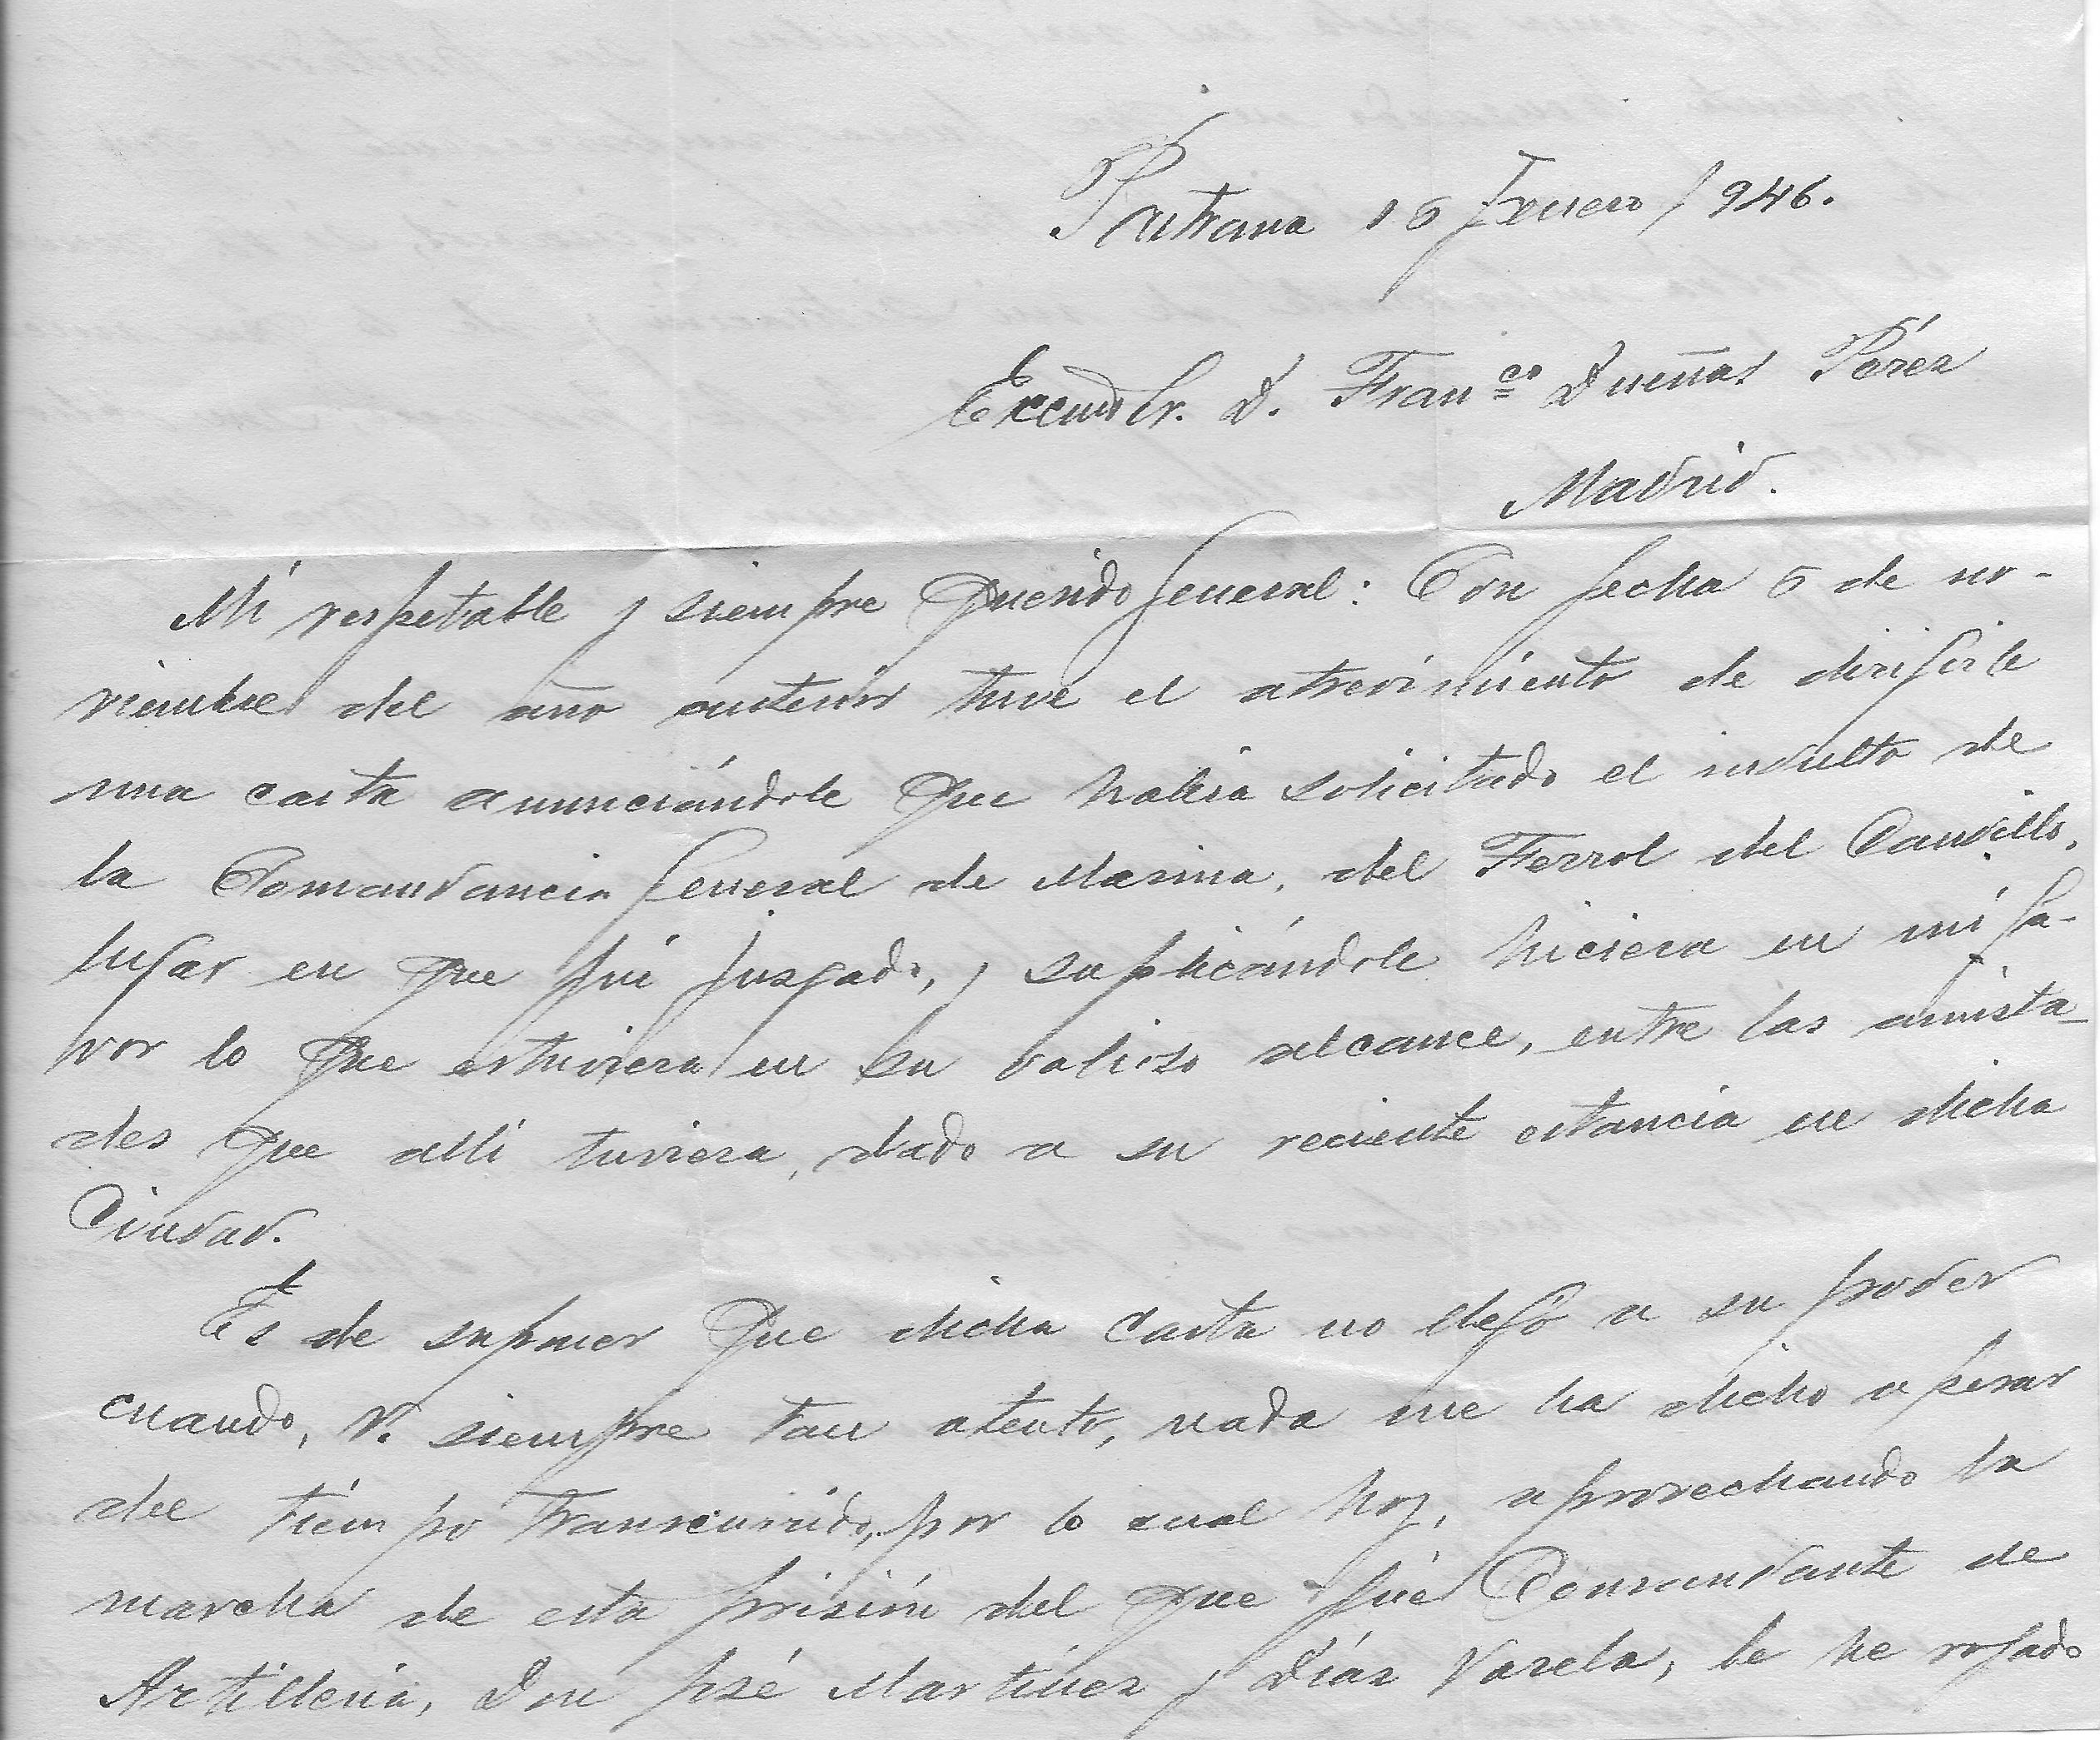 Pastrana 16 Enero / 946.
Excmo Sr. D. Fran.co Dueñas Pérez
Madrid.
Mi respetable y siempre querido General: Con fecha 6 de no-
viembre del año anterior tuve el atrevimiento de dirigirle
una carta anunciándole que había solicitado el indulto de
la Comandancia General de Marina, del Ferrol del Caudillo,
lugar en que fuí juzgado, y suplicándole hiciera en mi fa-
vor lo que estuviera en su valioso alcance, entre las amista-
des que allí tuviera, dado a su reciente estancia en dicha
Ciudad.
Es de suponer que dicha carta no llegó a su poder
cuando, V. siempre tan atento, nada me ha dicho a pesar
del tiempo transcurrido, por lo cual hoy, aprovechando la
marcha de esta prisión del que fué Comandante de
Artillería, Don José Martínez y Díaz Varela, le he rogado